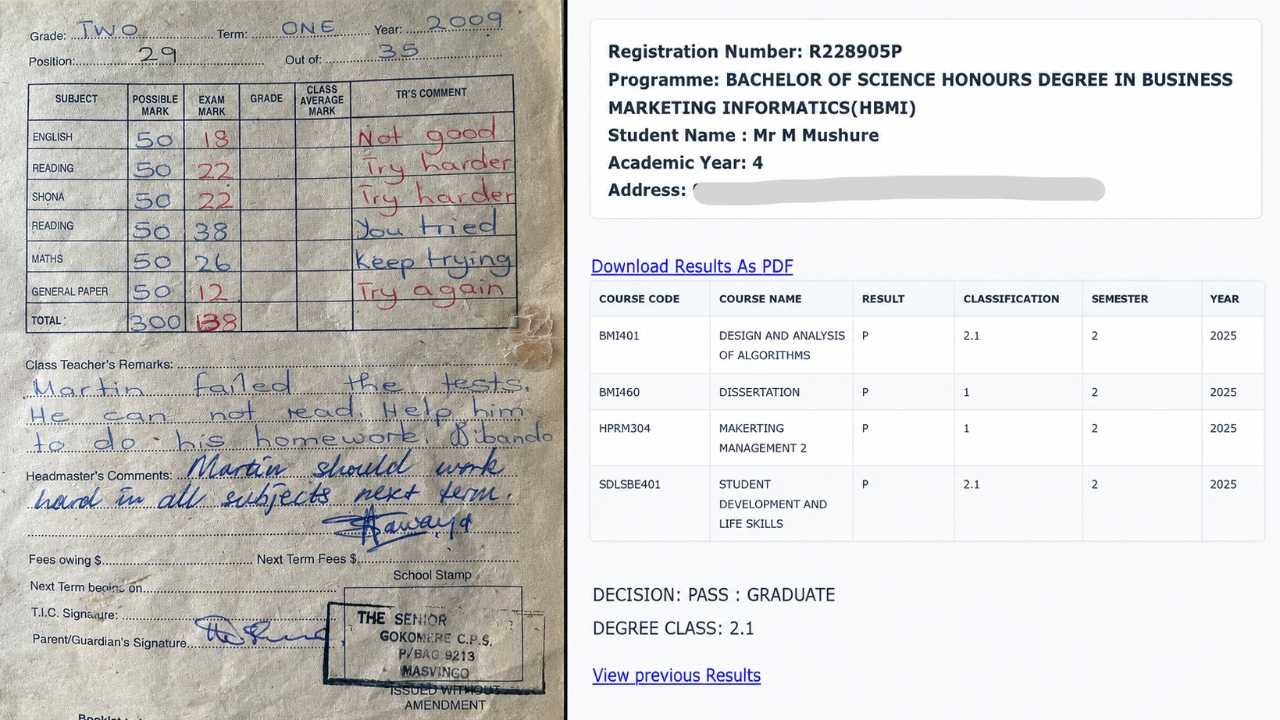 Grade: TWO Term: ONE Year: 2009
Position: 29 Out of: 35
SUBJECT POSSIBLE MARK EXAM MARK GRADE CLASS AVERAGE MARK TR'S COMMENT
ENGLISH 50 18 Not good
READING 50 22 Try harder
SHONA 50 22 Try harder
READING 50 38 You tried
MATHS 50 26 Keep trying
GENERAL PAPER 50 12 Try again
TOTAL 300 138
Class Teacher's Remarks:
Martin failed the tests.
He can not read. Help him
to do his homework. Bibando
Headmaster's Comments: Martin should work
hard in all subjects next term.
Fees owing $ Next Term Fees $
School Stamp
Next Term begins on
T.I.C. Signature:
Parent/Guardian's Signature
THE SENIOR
GOKOMERE C.P.S.
P/BAG 9213
MASVINGO
ISSUED WITHOUT
AMENDMENT
Registration Number: R228905P
Programme: BACHELOR OF SCIENCE HONOURS DEGREE IN BUSINESS
MARKETING INFORMATICS(HBMI)
Student Name : Mr M Mushure
Academic Year: 4
Address:
Download Results As PDF
COURSE CODE COURSE NAME RESULT CLASSIFICATION SEMESTER YEAR
BMI401 DESIGN AND ANALYSIS P 2.1 2 2025
OF ALGORITHMS
BMI460 DISSERTATION P 1 2 2025
HPRM304 MAKERTING P 1 2 2025
MANAGEMENT 2
SDLSBE401 STUDENT P 2.1 2 2025
DEVELOPMENT AND
LIFE SKILLS
DECISION: PASS : GRADUATE
DEGREE CLASS: 2.1
View previous Results